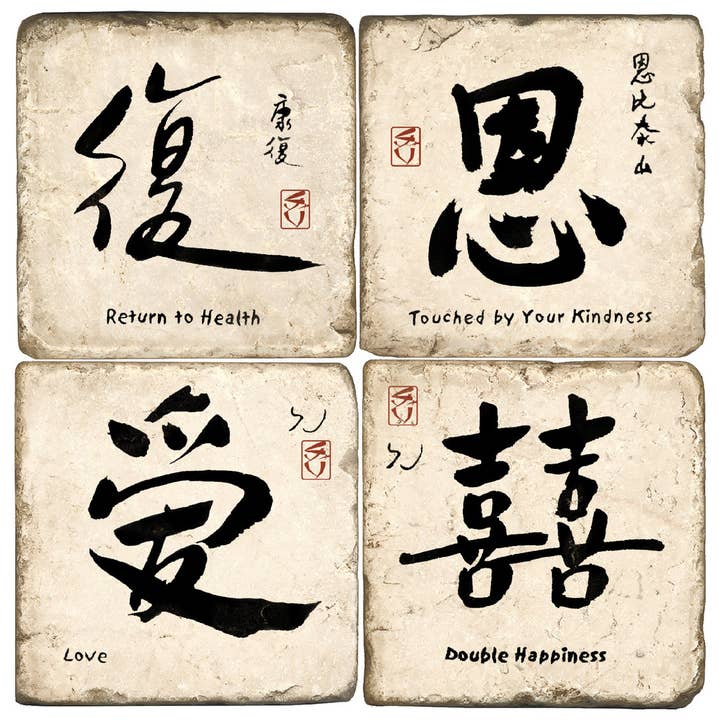 復
康復
Return to Health
恩
恩比泰山
Touched by Your Kindness
爱
Love
囍
Double Happiness